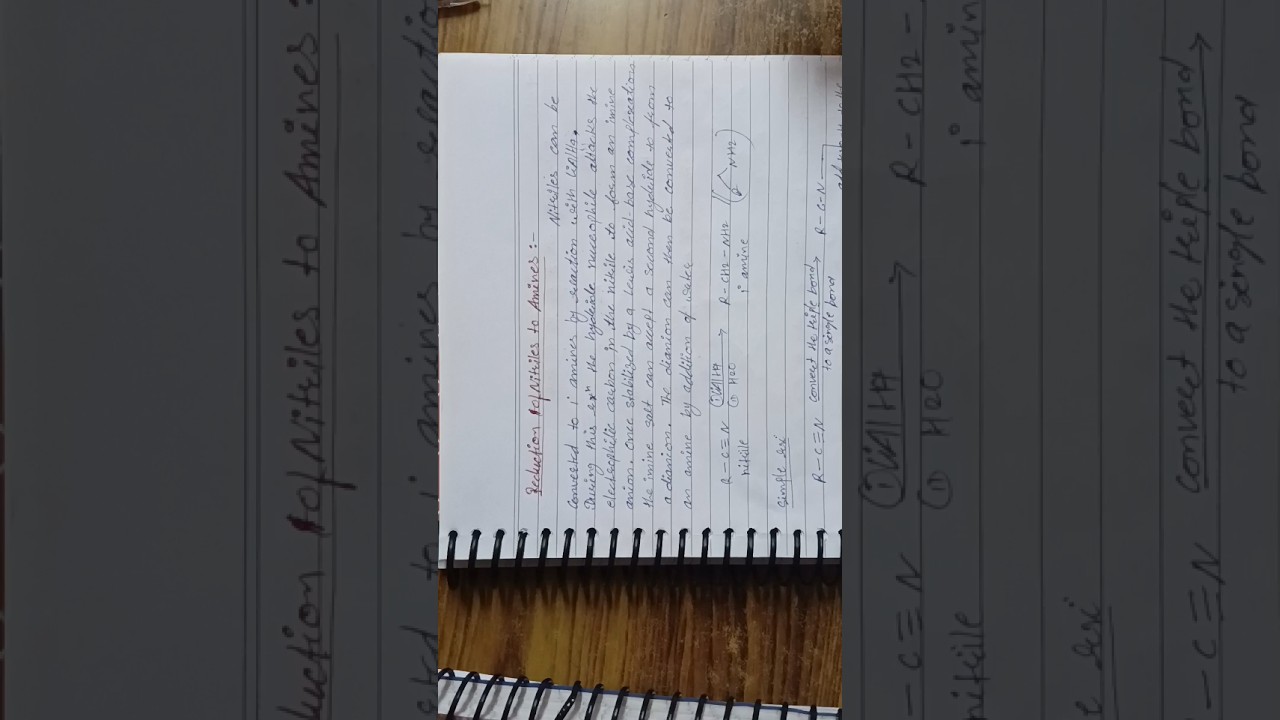 Reduction of Nitriles to Amines :-
Nitriles can be
converted to 1° amines by reaction with LiAlH4.
During this rxn the hydride nucleophile attacks the
electrophilic carbon in the nitrile to form an imine
anion. once stabilized by a Lewis acid-base complexation
the imine salt can accept a second hydride to form
a dianion. The dianion can then be converted to
an amine by addition of water
R-C≡N ① LiAlH4 → R-CH2-NH2 ( NH2)
② H2O
nitrile 1° amine
R-C≡N convert the triple bond → R-C-N
to a single bond